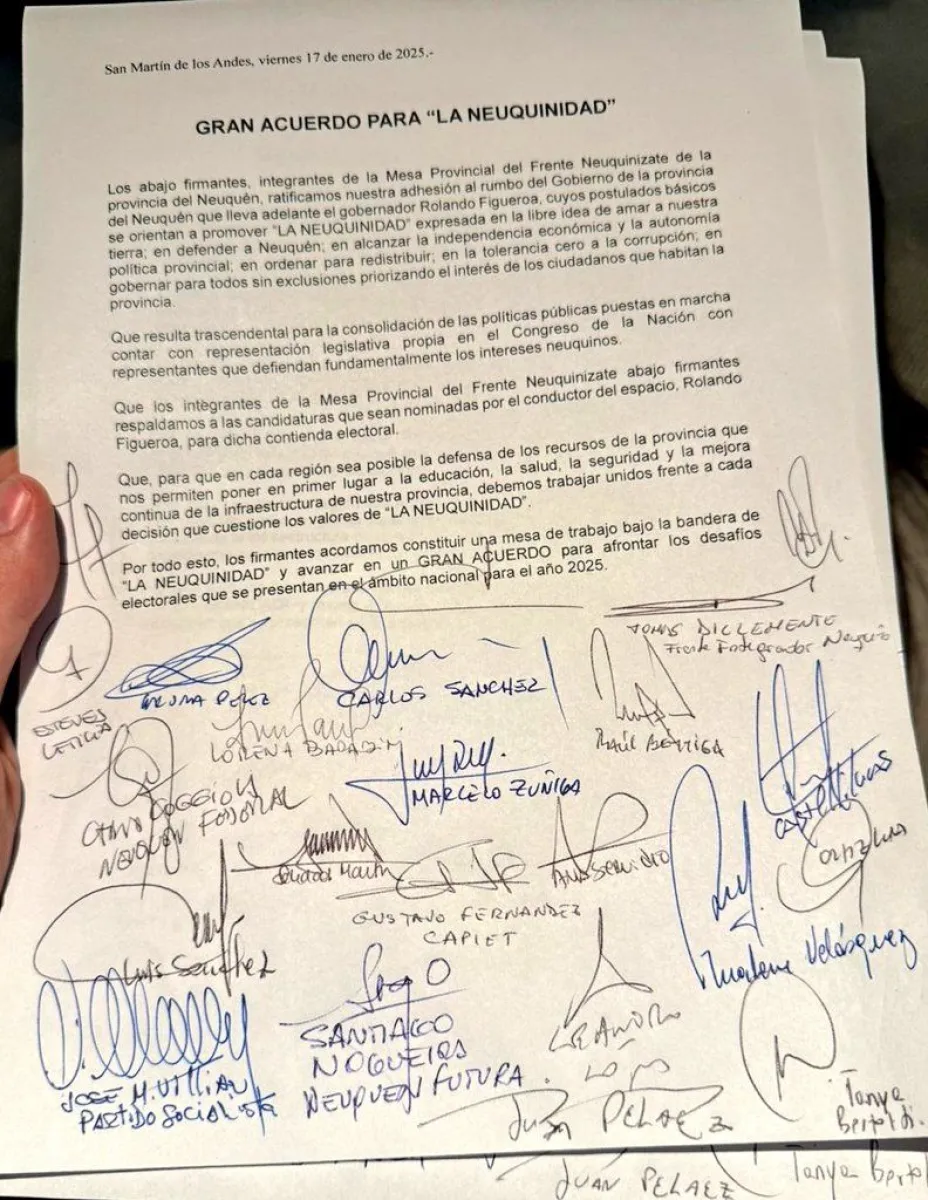 San Martín de los Andes, viernes 17 de enero de 2025.-
GRAN ACUERDO PARA "LA NEUQUINIDAD"
Los abajo firmantes, integrantes de la Mesa Provincial del Frente Neuquinizate de la
provincia del Neuquén, ratificamos nuestra adhesión al rumbo del Gobierno de la provincia
del Neuquén que lleva adelante el gobernador Rolando Figueroa, cuyos postulados básicos
se orientan a promover "LA NEUQUINIDAD" expresada en la libre idea de amar a nuestra
tierra; en defender a Neuquén; en alcanzar la independencia económica y la autonomía
política provincial; en ordenar para redistribuir; en la tolerancia cero a la corrupción; en
gobernar para todos sin exclusiones priorizando el interés de los ciudadanos que habitan la
provincia.
Que resulta trascendental para la consolidación de las políticas públicas puestas en marcha
contar con representación legislativa propia en el Congreso de la Nación con
representantes que defiendan fundamentalmente los intereses neuquinos.
Que los integrantes de la Mesa Provincial del Frente Neuquinizate abajo firmantes
respaldamos a las candidaturas que sean nominadas por el conductor del espacio, Rolando
Figueroa, para dicha contienda electoral.
Que, para que en cada región sea posible la defensa de los recursos de la provincia que
nos permiten poner en primer lugar a la educación, la salud, la seguridad y la mejora
continua de la infraestructura de nuestra provincia, debemos trabajar unidos frente a cada
decisión que cuestione los valores de "LA NEUQUINIDAD".
Por todo esto, los firmantes acordamos constituir una mesa de trabajo bajo la bandera de
"LA NEUQUINIDAD" y avanzar en un GRAN ACUERDO para afrontar los desafíos
electorales que se presentan en el ámbito nacional para el año 2025.
TOMAS DICLEMENTE
Frente Integrador Neuquino
ESTEVES
LETICIA
PEREZ
CARLOS SANCHEZ
LORENA
RAÚL BETTIGA
MARCELO ZUÑIGA
NEUQUEN FEDERAL
GUSTAVO FERNANDEZ
CAPIET
ANA SERVIDIO
LUIS Sanchez
Marlene Velásquez
JOSE M. VILLAR
PARTIDO SOCIALISTA
SANTIAGO
NOGUEIRA
NEUQUEN FUTURA
LEANDRO
Juan PELAEZ
Tanya
Bertoldi.
JUAN PELAEZ
Tanya